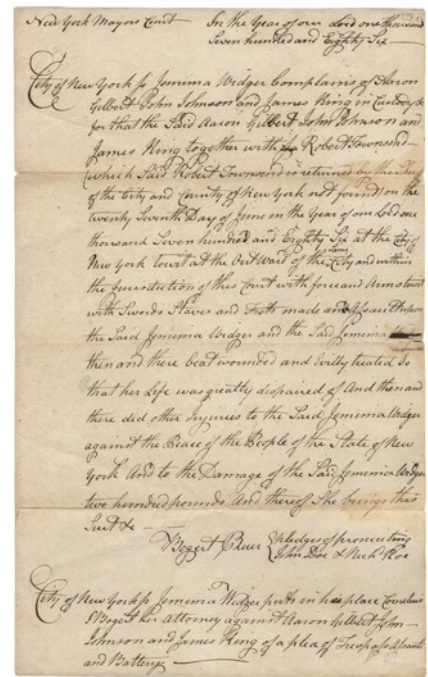 New York Mayors Court In the Year of our Lord one thousand
Seven hundred and Eighty Six
City of New York ss Jemima Widger Complains of Aaron
Gilbert John Johnson and James King in Custody &c
for that the Said Aaron Gilbert John Johnson and
James King together with Robert Townsend
(which Said Robert Townsend is returned by the Sheriff
of the City and County of New York not found) on the
twenty Seventh Day of June in the Year of our Lord one
thousand Seven hundred and Eighty Six at the City of
New York towit at the Out Ward of the Same City and within
the Jurisdiction of this Court with force and Arms towit
with Swords Staves and Fists made an Assault upon
the Said Jemima Widger and the Said Jemima
then and there beat wounded and Evilly treated So
that her Life was greatly dispaired of And then and
there did other Injuries to the Said Jemima Widger
against the Peace of the People of the State of New
York And to the Damage of the Said Jemima Widger
two hundred pounds And thereof She brings this
Suit &c
Bogert pledges of prosecuting
John Doe & Rich Roe
City of New York ss Jemima Widger puts in her place Cornelius
J Bogert her Attorney against Aaron Gilbert John
Johnson and James King of a plea of Trespass Assault
and Battery